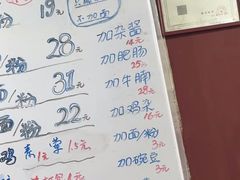 19元
不加面
加杂酱
14元
面/粉 28元
加肥肠
25元
面/粉 31元
加牛腩
28元
面/粉 22元
加鸡杂
16元
鸡 素1元 荤1.5元
加面/粉
3元
加豌豆
3元